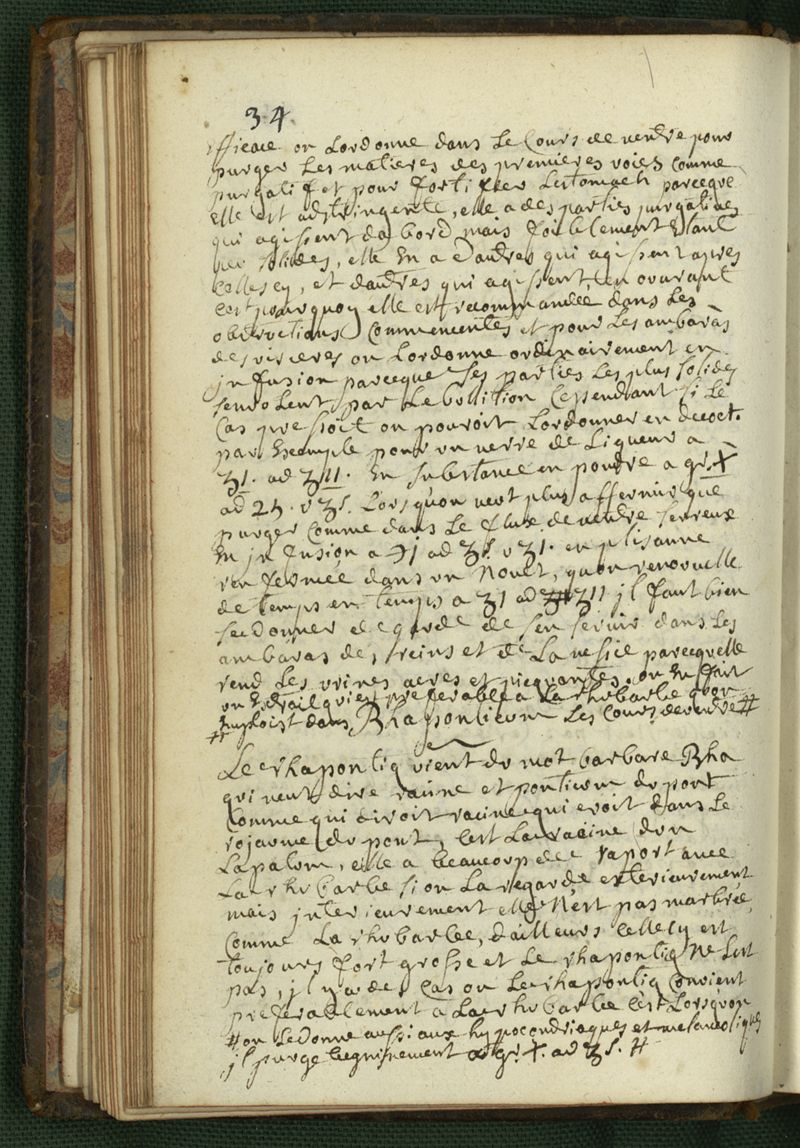 34
efficace on Lordonne dans Le Cours de ventre pour
purger Les matieres des premieres voies comme
purgatif et pour fortifier Lestomach parceque
elle est adstringente, elle a des parties purgatives
qui agissent dabord mais foiblement Etant
peu solides, elle En a dautres qui agissent apres
Celles cy, et dautres qui agissent en ouvrant
cest pourquoy elle est recommandée dans Les
obstructions Commencentes et pour Les ambaras
des visceres on Lordonne ordinairement en
infusion parceque Ses parties Les plus solides
senvolent par Lebullition Cependant si Le
Cas pressoit on pouroit Lordonner en decoct.
par Exemple pour un verre de Liqueur a
ʒ1. ad ʒ11. En substance en poudre a gr. X
ad 25. v ʒs. Lorsquon veut plus affermir que
purger Comme dans Le flux de ventre sereux
En infusion a ℈j ad ʒs v ʒ1. en ptisanne
renfermée dans un Nouet, quon renouvelle
de temps en temps a ʒ1 ad ʒ11 jl faut bien
se donner de garde de sen servir dans Les
ambaras des reins et de La vessie parcequelle
rend Les urines acres et picquantes. on En fait
un Extrait qui est preferable a La rhubarbe quon
# Emploist dans Les Cours de ventre #
Rhaponticum
Le rhapontiq vient du mot barbare Rha
qui veut dire racine et ponticum du pont
Comme qui diroit racine qui croit dans Le
rojaume du pont, Cest La racine dun
Lapatum, elle a beaucoup de raport avec
La rhubarbe si on La regarde exterieurement
mais jnterieurement elle N'est pas marbrée
Comme La rhubarbe, dailleurs celle cy est
toujours fort grosse et Le rhapontiq Ne Lest
pas, jl y a des Cas ou Le rhapontiq Convient
preferablement a La rhubarbe Cest Lorsquon
# on Le donne aussi aux hypocondriaques et melancoliques
jl purge benignement a gr. X. ad ʒs. #